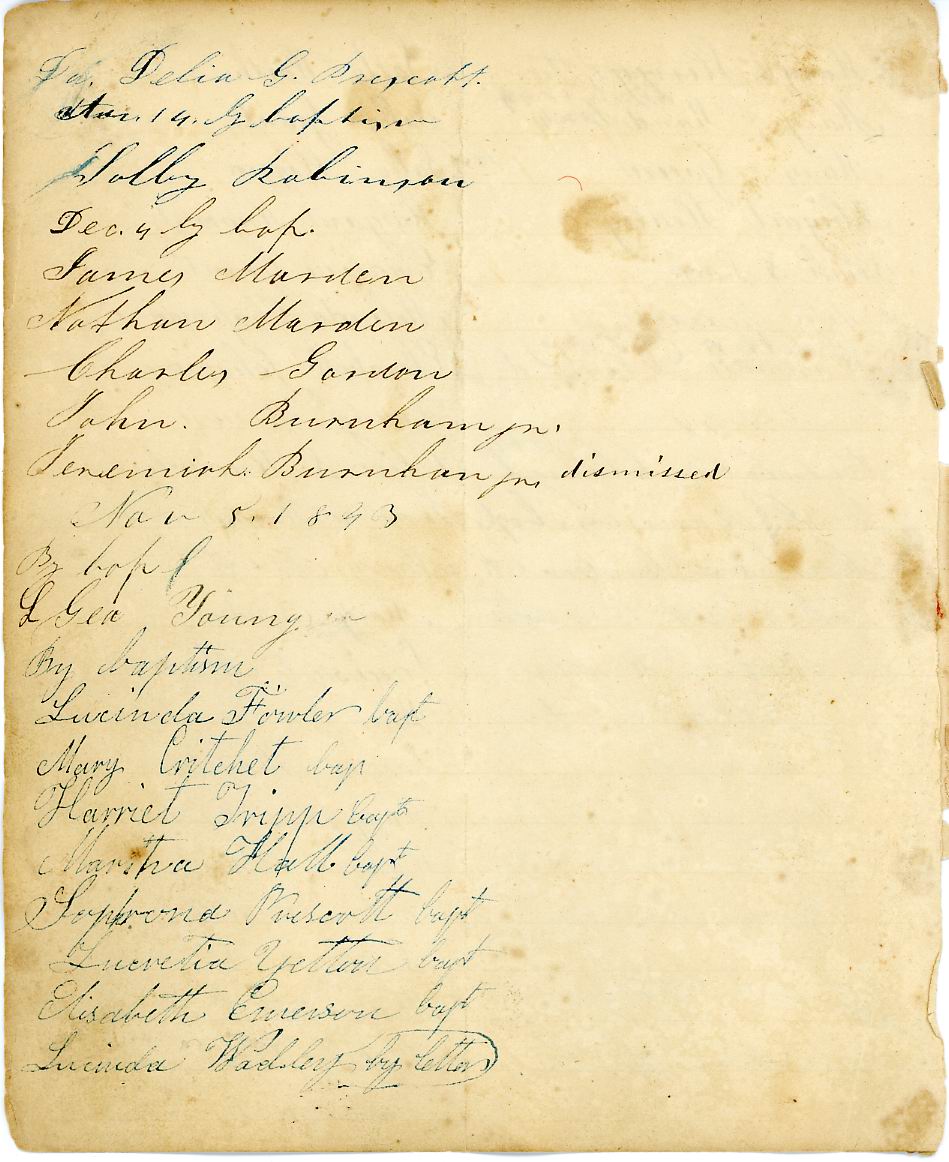 Delia G. Prescott.
Mar. 14. By baptism
Dolly Robinson
Dec. 4 by bap.
James Marden
Nathan Marden
Charles Gordon
John. Burnham jr.
Jeremiah. Burnham jr, dismissed
Nov 5. 1843
By bap
Geo Young
By baptism
Lucinda Fowler bapt
Mary Critchet bap
Harriet Tripp bapt
Martha Hall bapt
Sophrona Prescott bapt
Lucretia Yetton bapt
Elisabeth Emerson bapt
Lucinda Wadley by letter